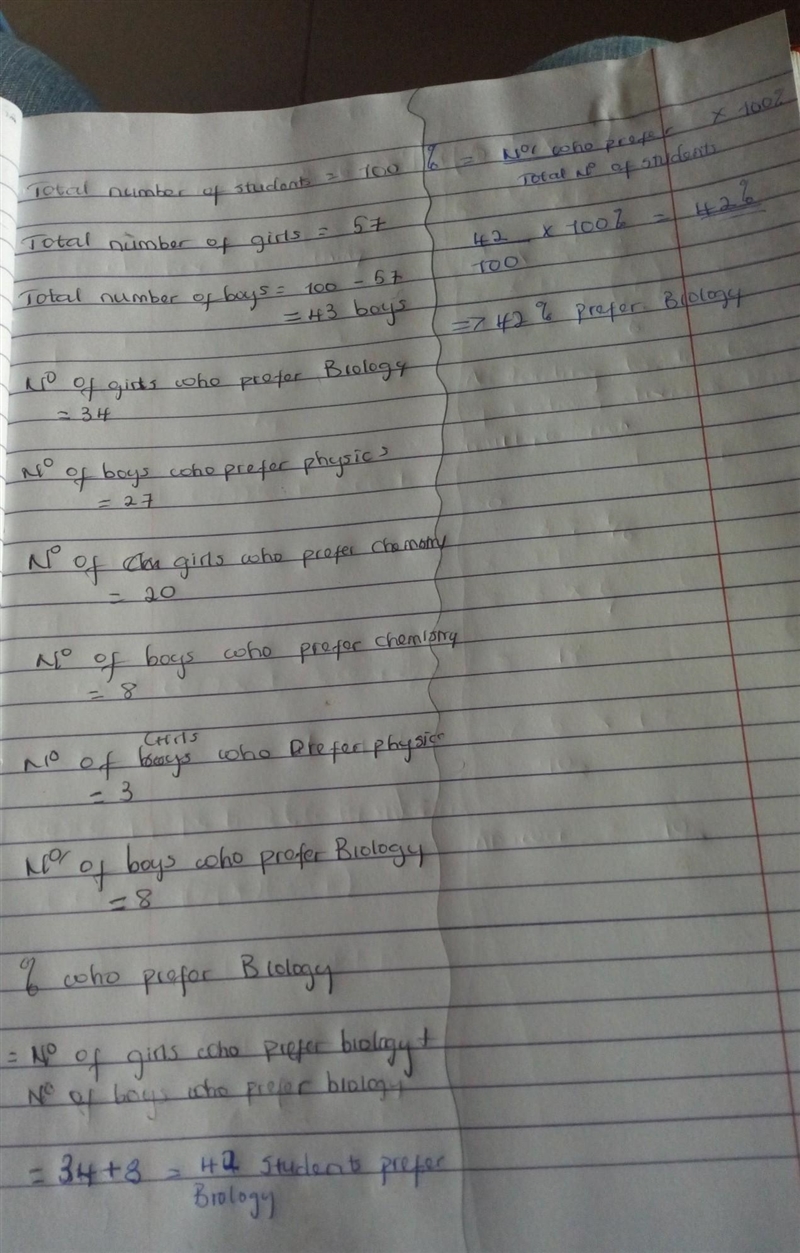 Total number of students = 100
Total number of girls = 57
Total number of boys = 100 - 57
= 43 boys
Nº of girls who prefer Biology
= 34
Nº of boys who prefer physics
= 27
Nº of girls who prefer chemistry
= 20
Nº of boys who prefer chemistry
= 8
Nº of Girls who prefer physics
= 3
Nº of boys who prefer Biology
= 8
% who prefer Biology
= Nº of girls who prefer biology +
Nº of boys who prefer biology
= 34+8 = 42 students prefer
Biology
% = Nº who prefer × 100%
Total Nº of students
42 × 100% = 42%
100
=> 42% prefer Biology